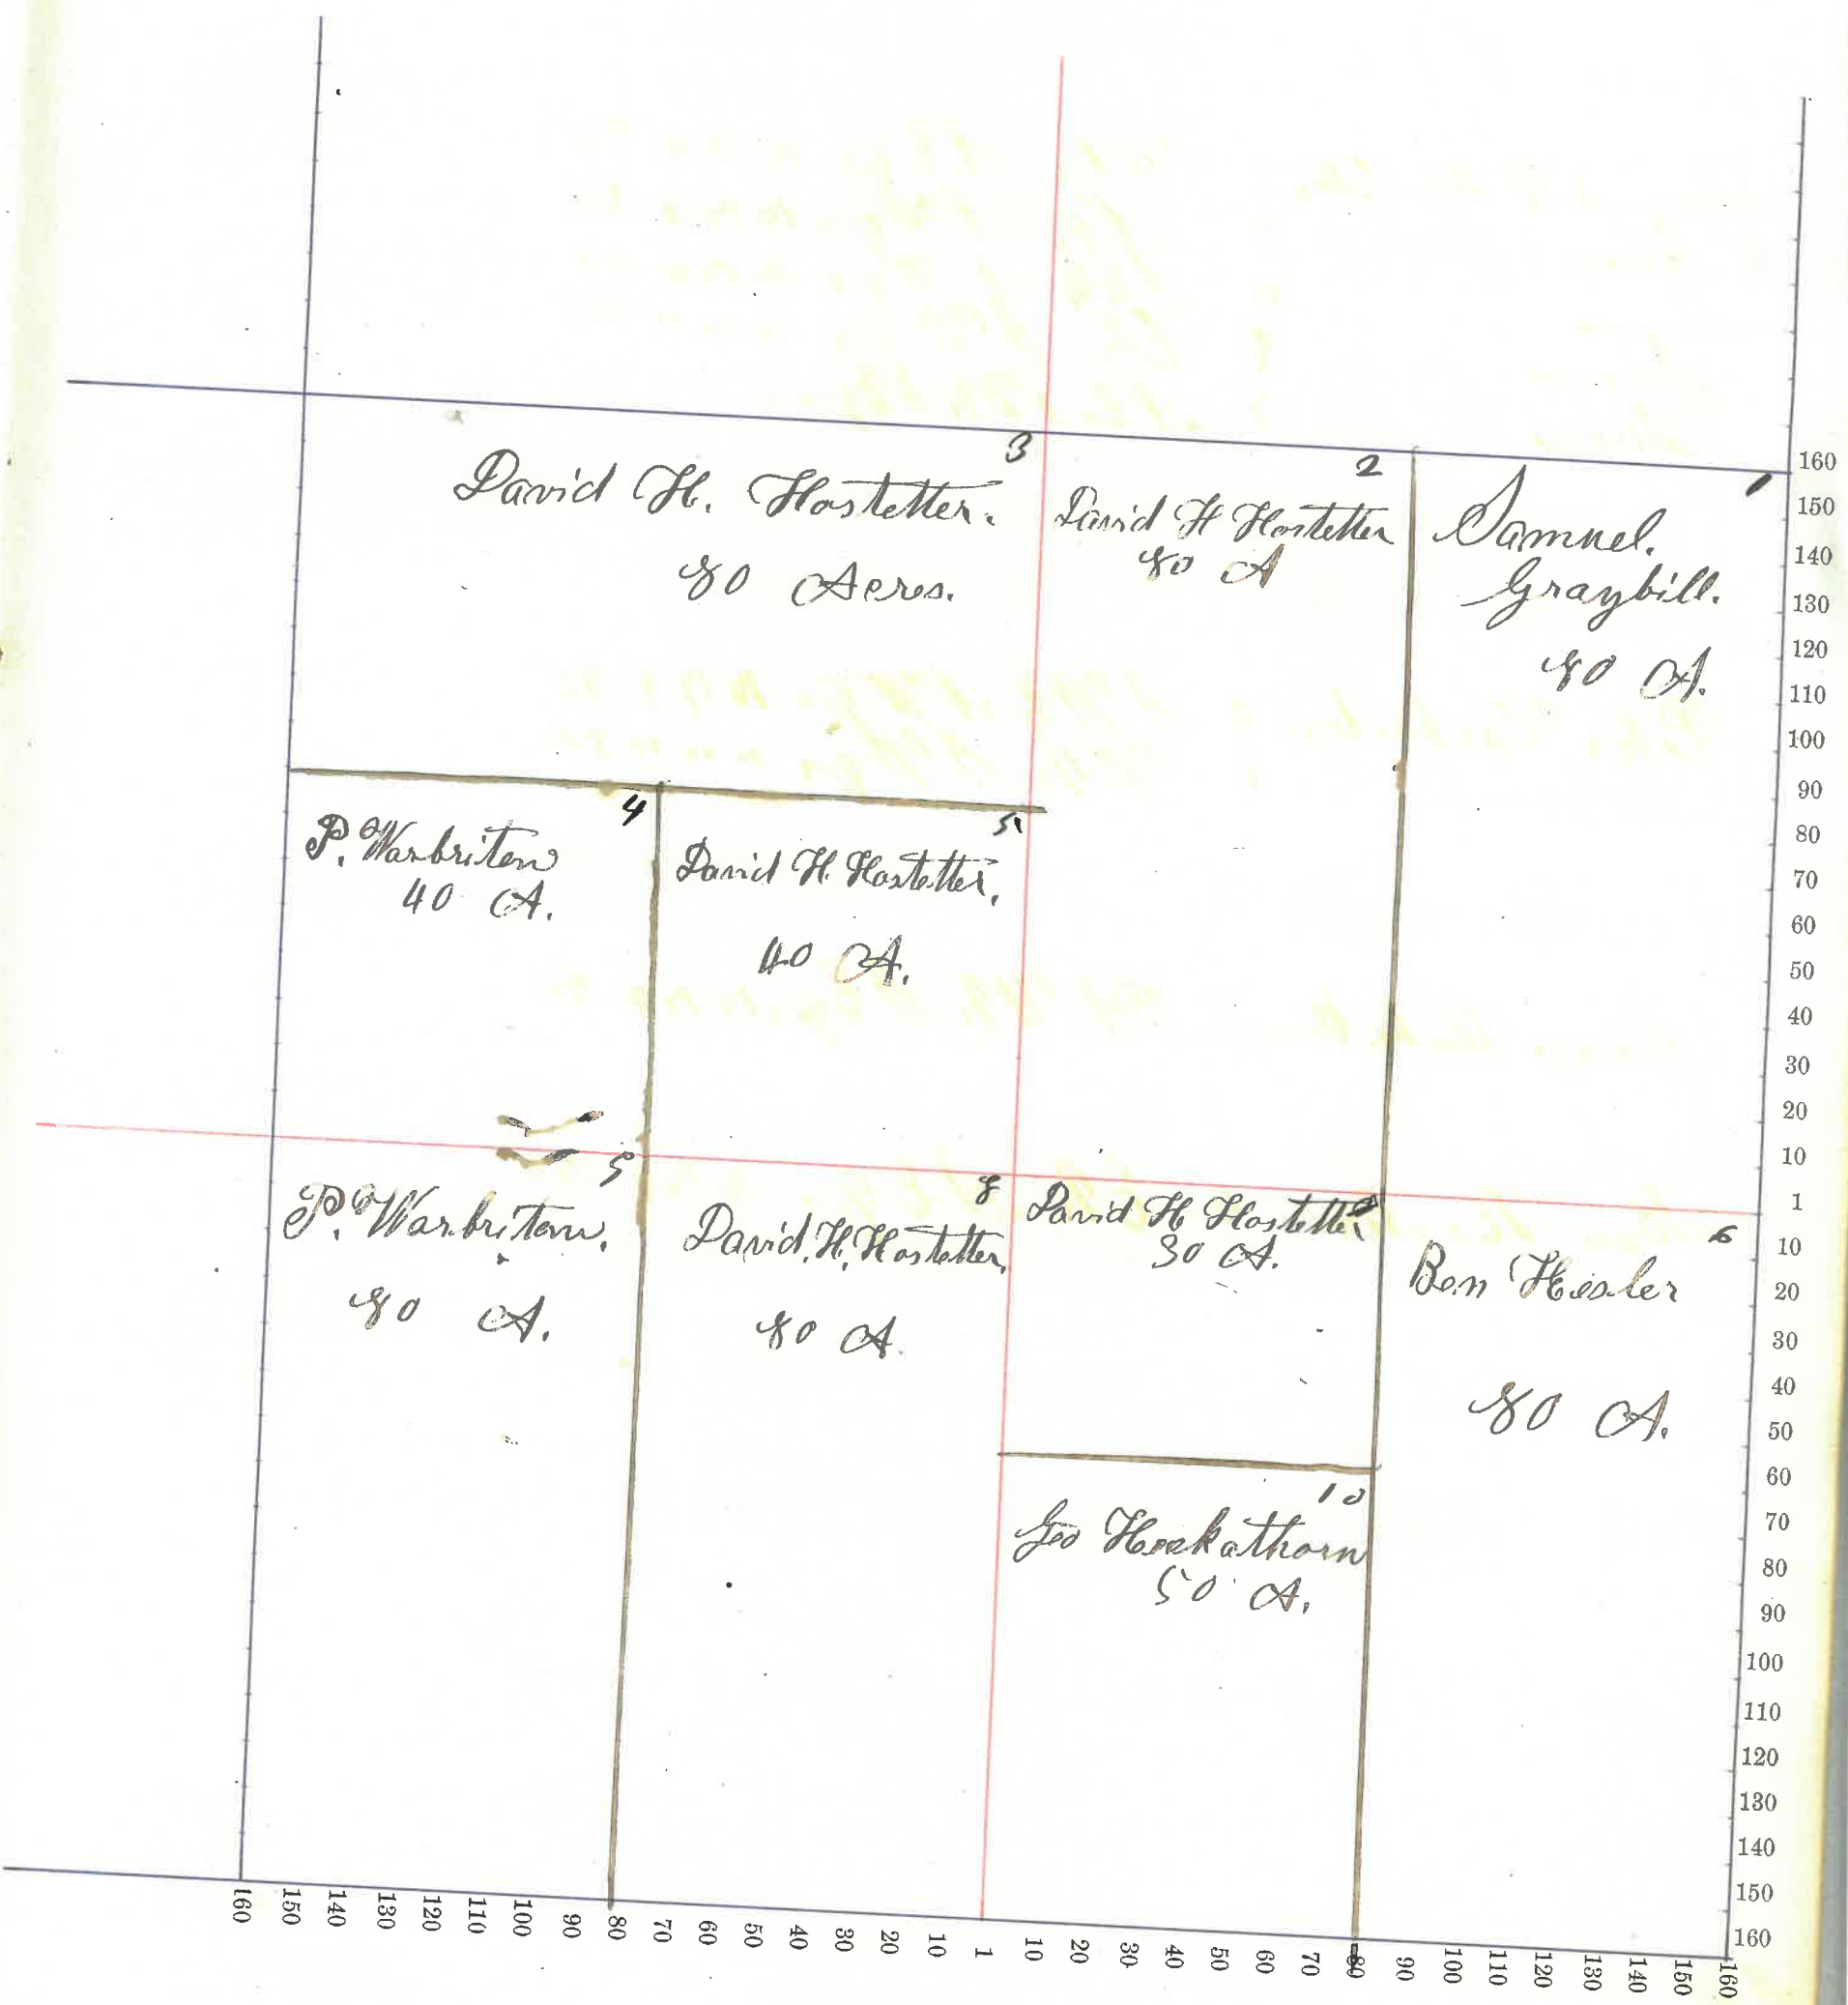 3
David H. Hostetter.
80 Acres.
2
David H Hostetter
80 A
1
Samuel.
Graybill.
80 A.
4
P. Warbriton
40 A.
5
David H. Hostetter.
40 A.
5
P. Warbriton.
80 A.
8
David. H. Hostetter.
80 A.
David H Hostetter
30 A.
6
Ben Hesler
80 A.
10
Geo Heckathorn
50 A.
160
150
140
130
120
110
100
90
80
70
60
50
40
30
20
10
1
10
20
30
40
50
60
70
80
90
100
110
120
130
140
150
160
160
150
140
130
120
110
100
90
80
70
60
50
40
30
20
10
1
10
20
30
40
50
60
70
80
90
100
110
120
130
140
150
160